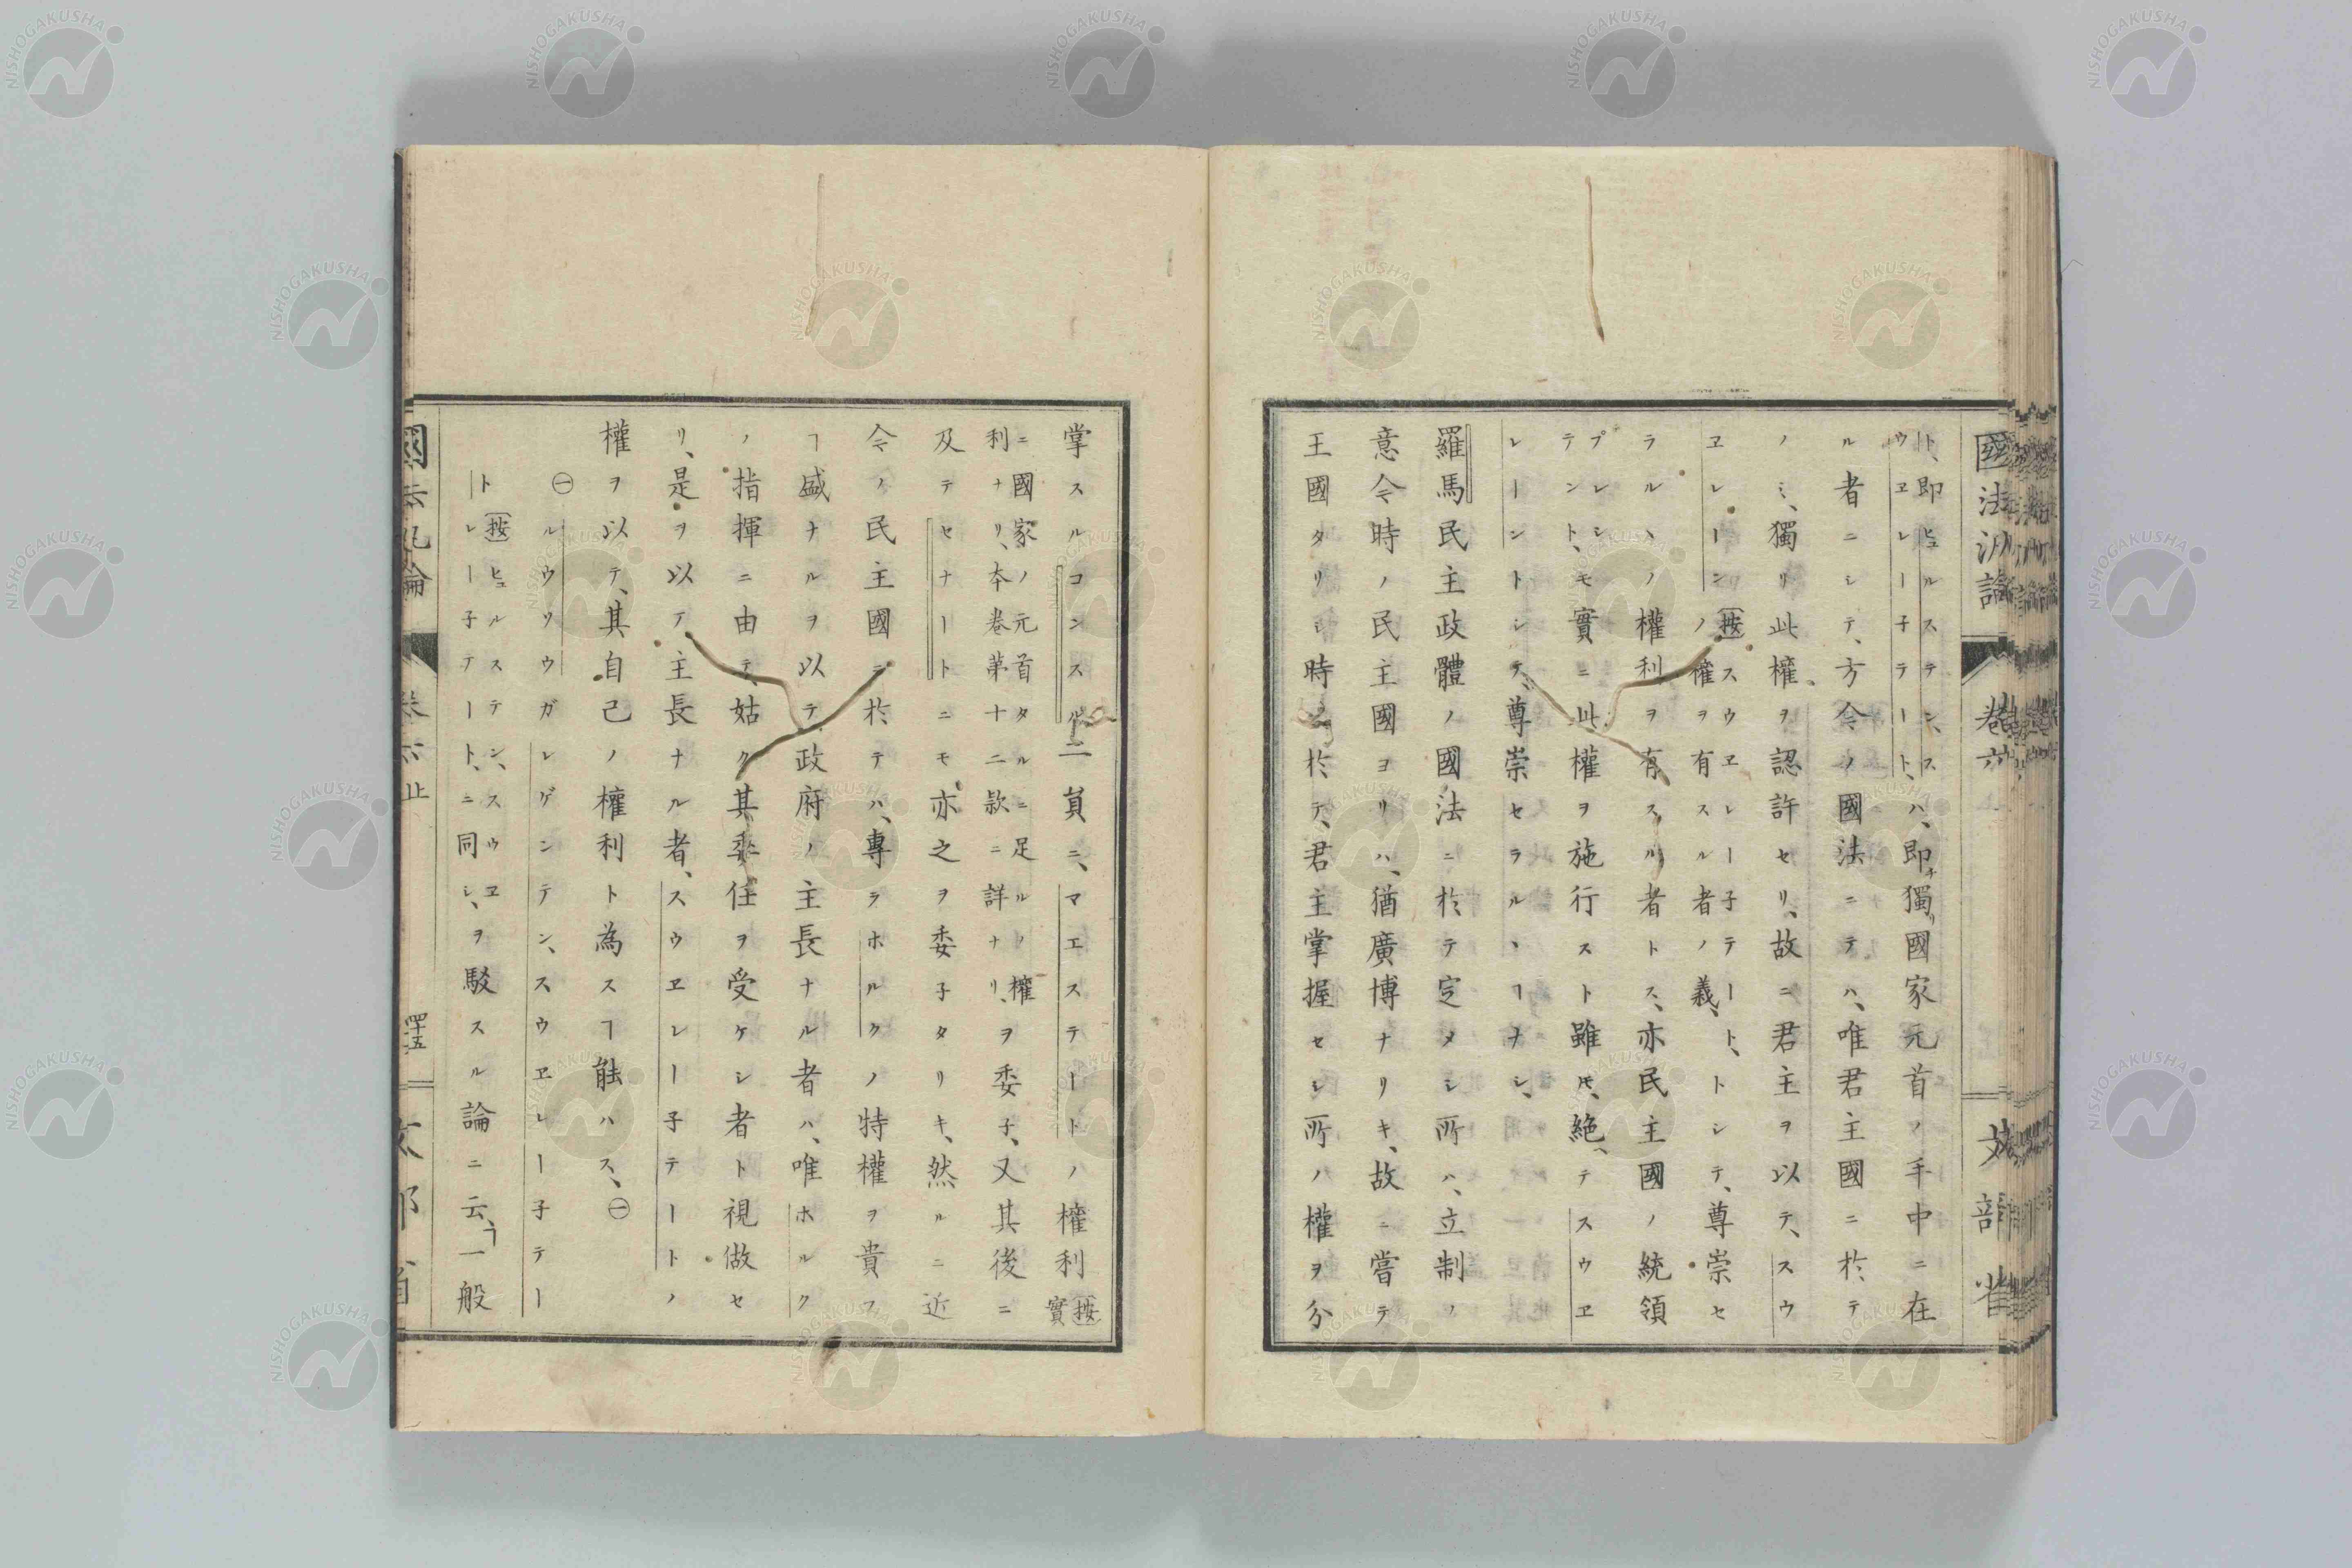 國法汎論
卷六
文部省
ト、即ヒュルステン、ス
ウヱレー子テート、ハ、即チ獨リ國家元首ノ手中ニ在
ル者ニシテ、方今ノ國法ニテハ、唯君主國ニ於テ
ノミ、獨リ此權ヲ認許セリ、故ニ君主ヲ以テ、スウ
ヱレーン
按スウヱレー子テート、
ノ權ヲ有スル者ノ義、
トシテ、尊崇セ
ラルヽノ權利ヲ有スル者トス、亦民主國ノ統領
プレシ
テント、モ實ニ此權ヲ施行スト雖𪜈、絶テスウヱ
レーントシテ、尊崇セラルヽヿナシ、
羅馬民主政體ノ國法ニ於テ定メシ所ハ、立制ノ
意今時ノ民主國ヨリハ、猶廣博ナリキ、故ニ嘗テ
王國タリシ時ニ於テ、君主掌握セシ所ノ權ヲ分
掌スルコンスル二員ニ、マエステートノ權利
按實
ニ國家ノ元首タルニ足ルノ權
利ナリ、本卷第十二款ニ詳ナリ、
ヲ委子、又其後ニ
及テセナートニモ亦之ヲ委子タリキ、然ルニ近
今ノ民主國ニ於テハ、專ラホルクノ特權ヲ貴フ
ヿ盛ナルヲ以テ、政府ノ主長ナル者ハ、唯ホルク
ノ指揮ニ由テ、姑ク其委任ヲ受ケシ者ト視做セ
リ、是ヲ以テ主長ナル者、スウヱレー子テートノ
權ヲ以テ、其自己ノ權利ト為スヿ能ハス、㊀
㊀ルウソウガレレゲンテン、スウヱレー子テー
ト
按ヒュルステン、スウヱ
レー子テート、ニ同シ、
ヲ駁スル論ニ云、「一般
卷六上
四十五